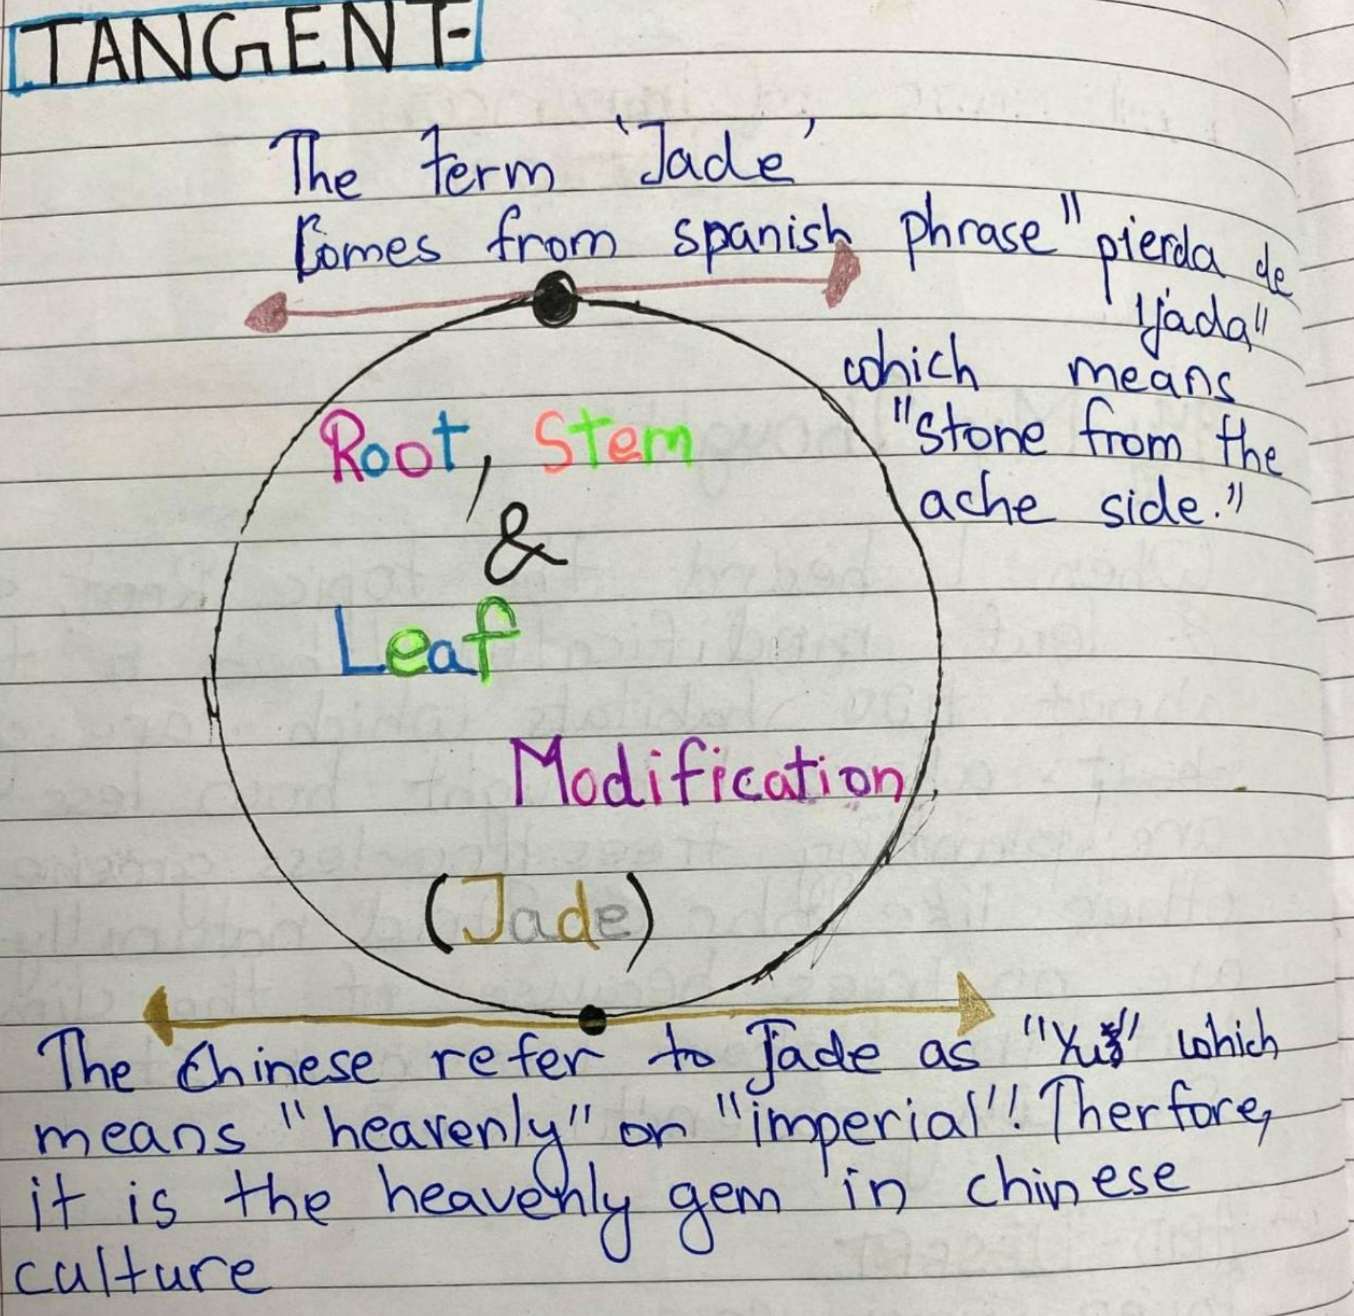 TANGENT-
The term 'Jade'
Comes from spanish phrase "pierda de
ijada"
which means
"stone from the
ache side."
Root, Stem
&
Leaf
Modification
(Jade)
The Chinese refer to Jade as "Yu" which
means "heavenly" or "imperial"! Therfore,
it is the heavenly gem in chinese
culture